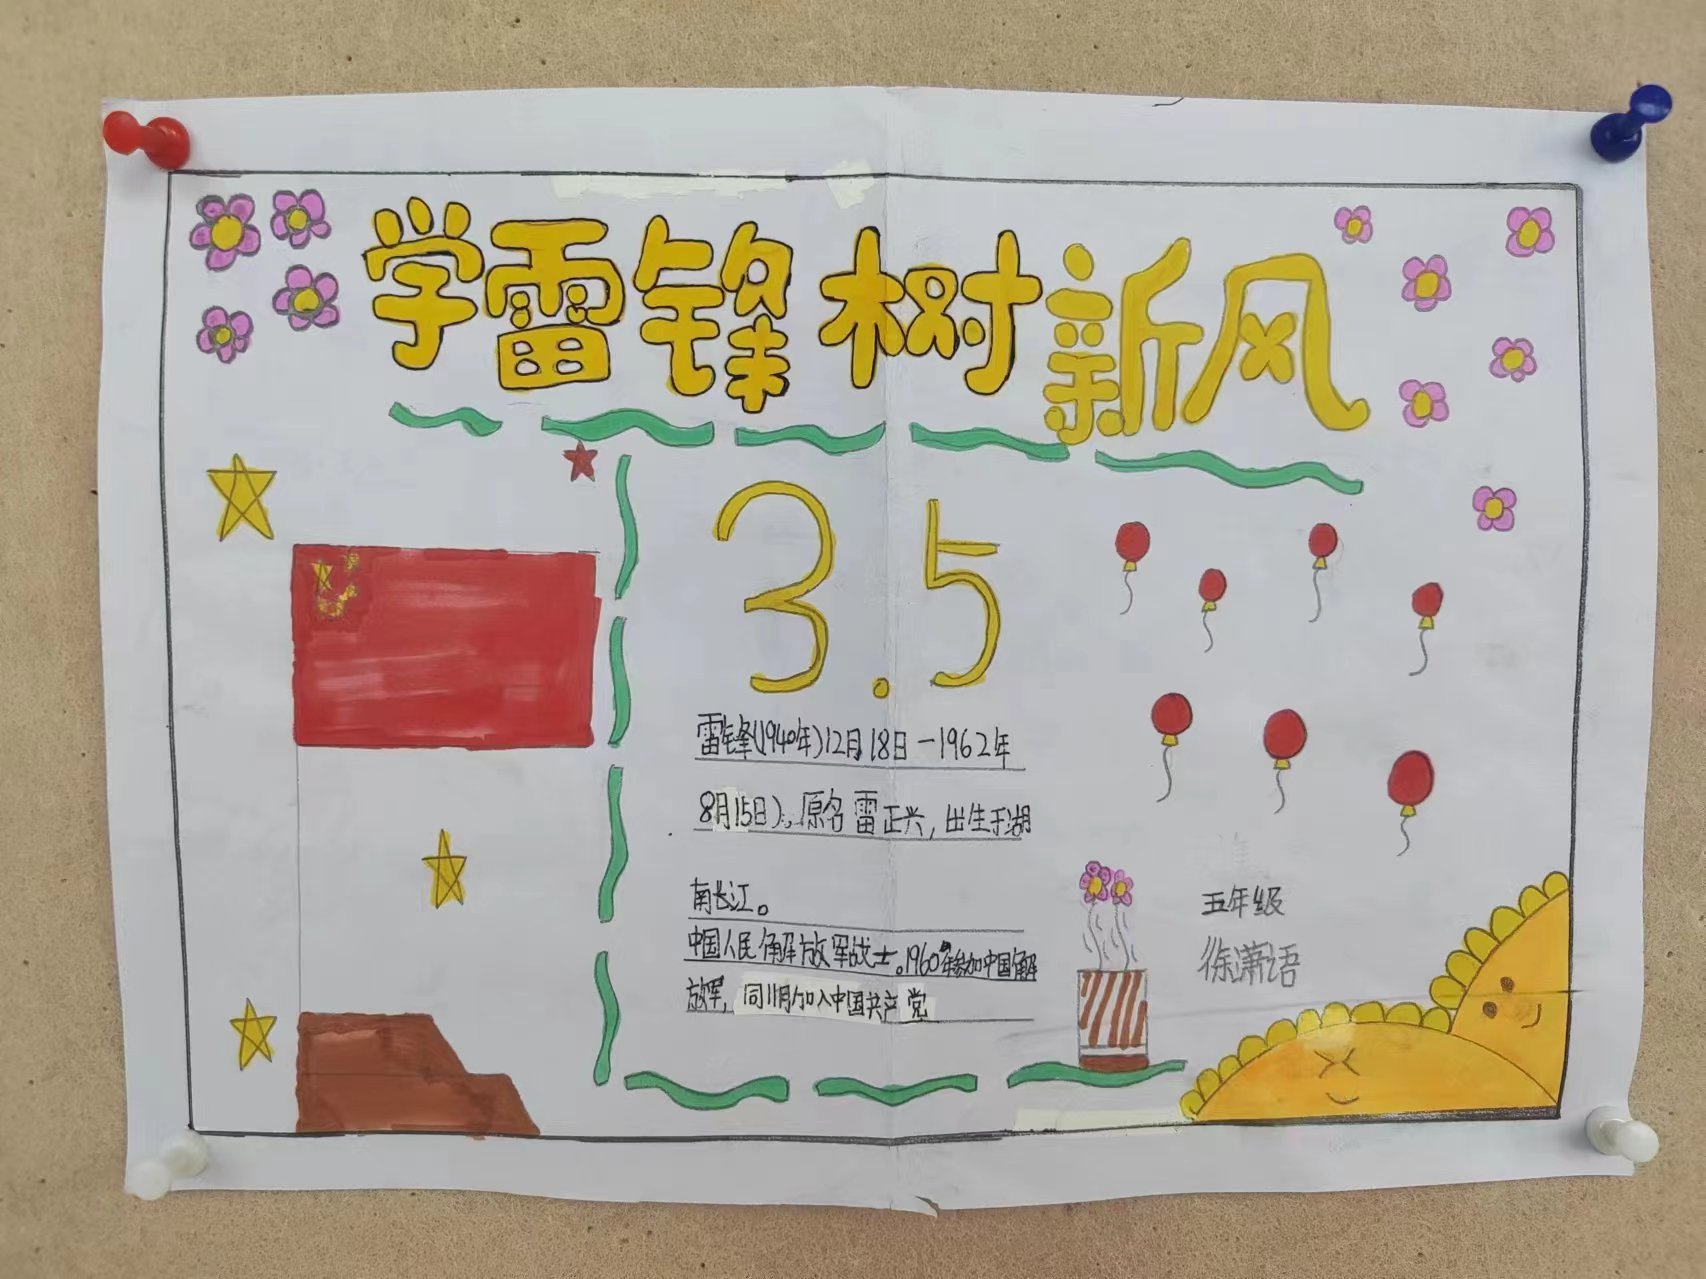 学雷锋 树新风
3.5
雷锋(1940年)12月18日—1962年
8月15日),原名雷正兴,出生于湖
南长江。
中国人民解放军战士。1960年参加中国解
放军,同11月加入中国共产党
五年级
徐潇语